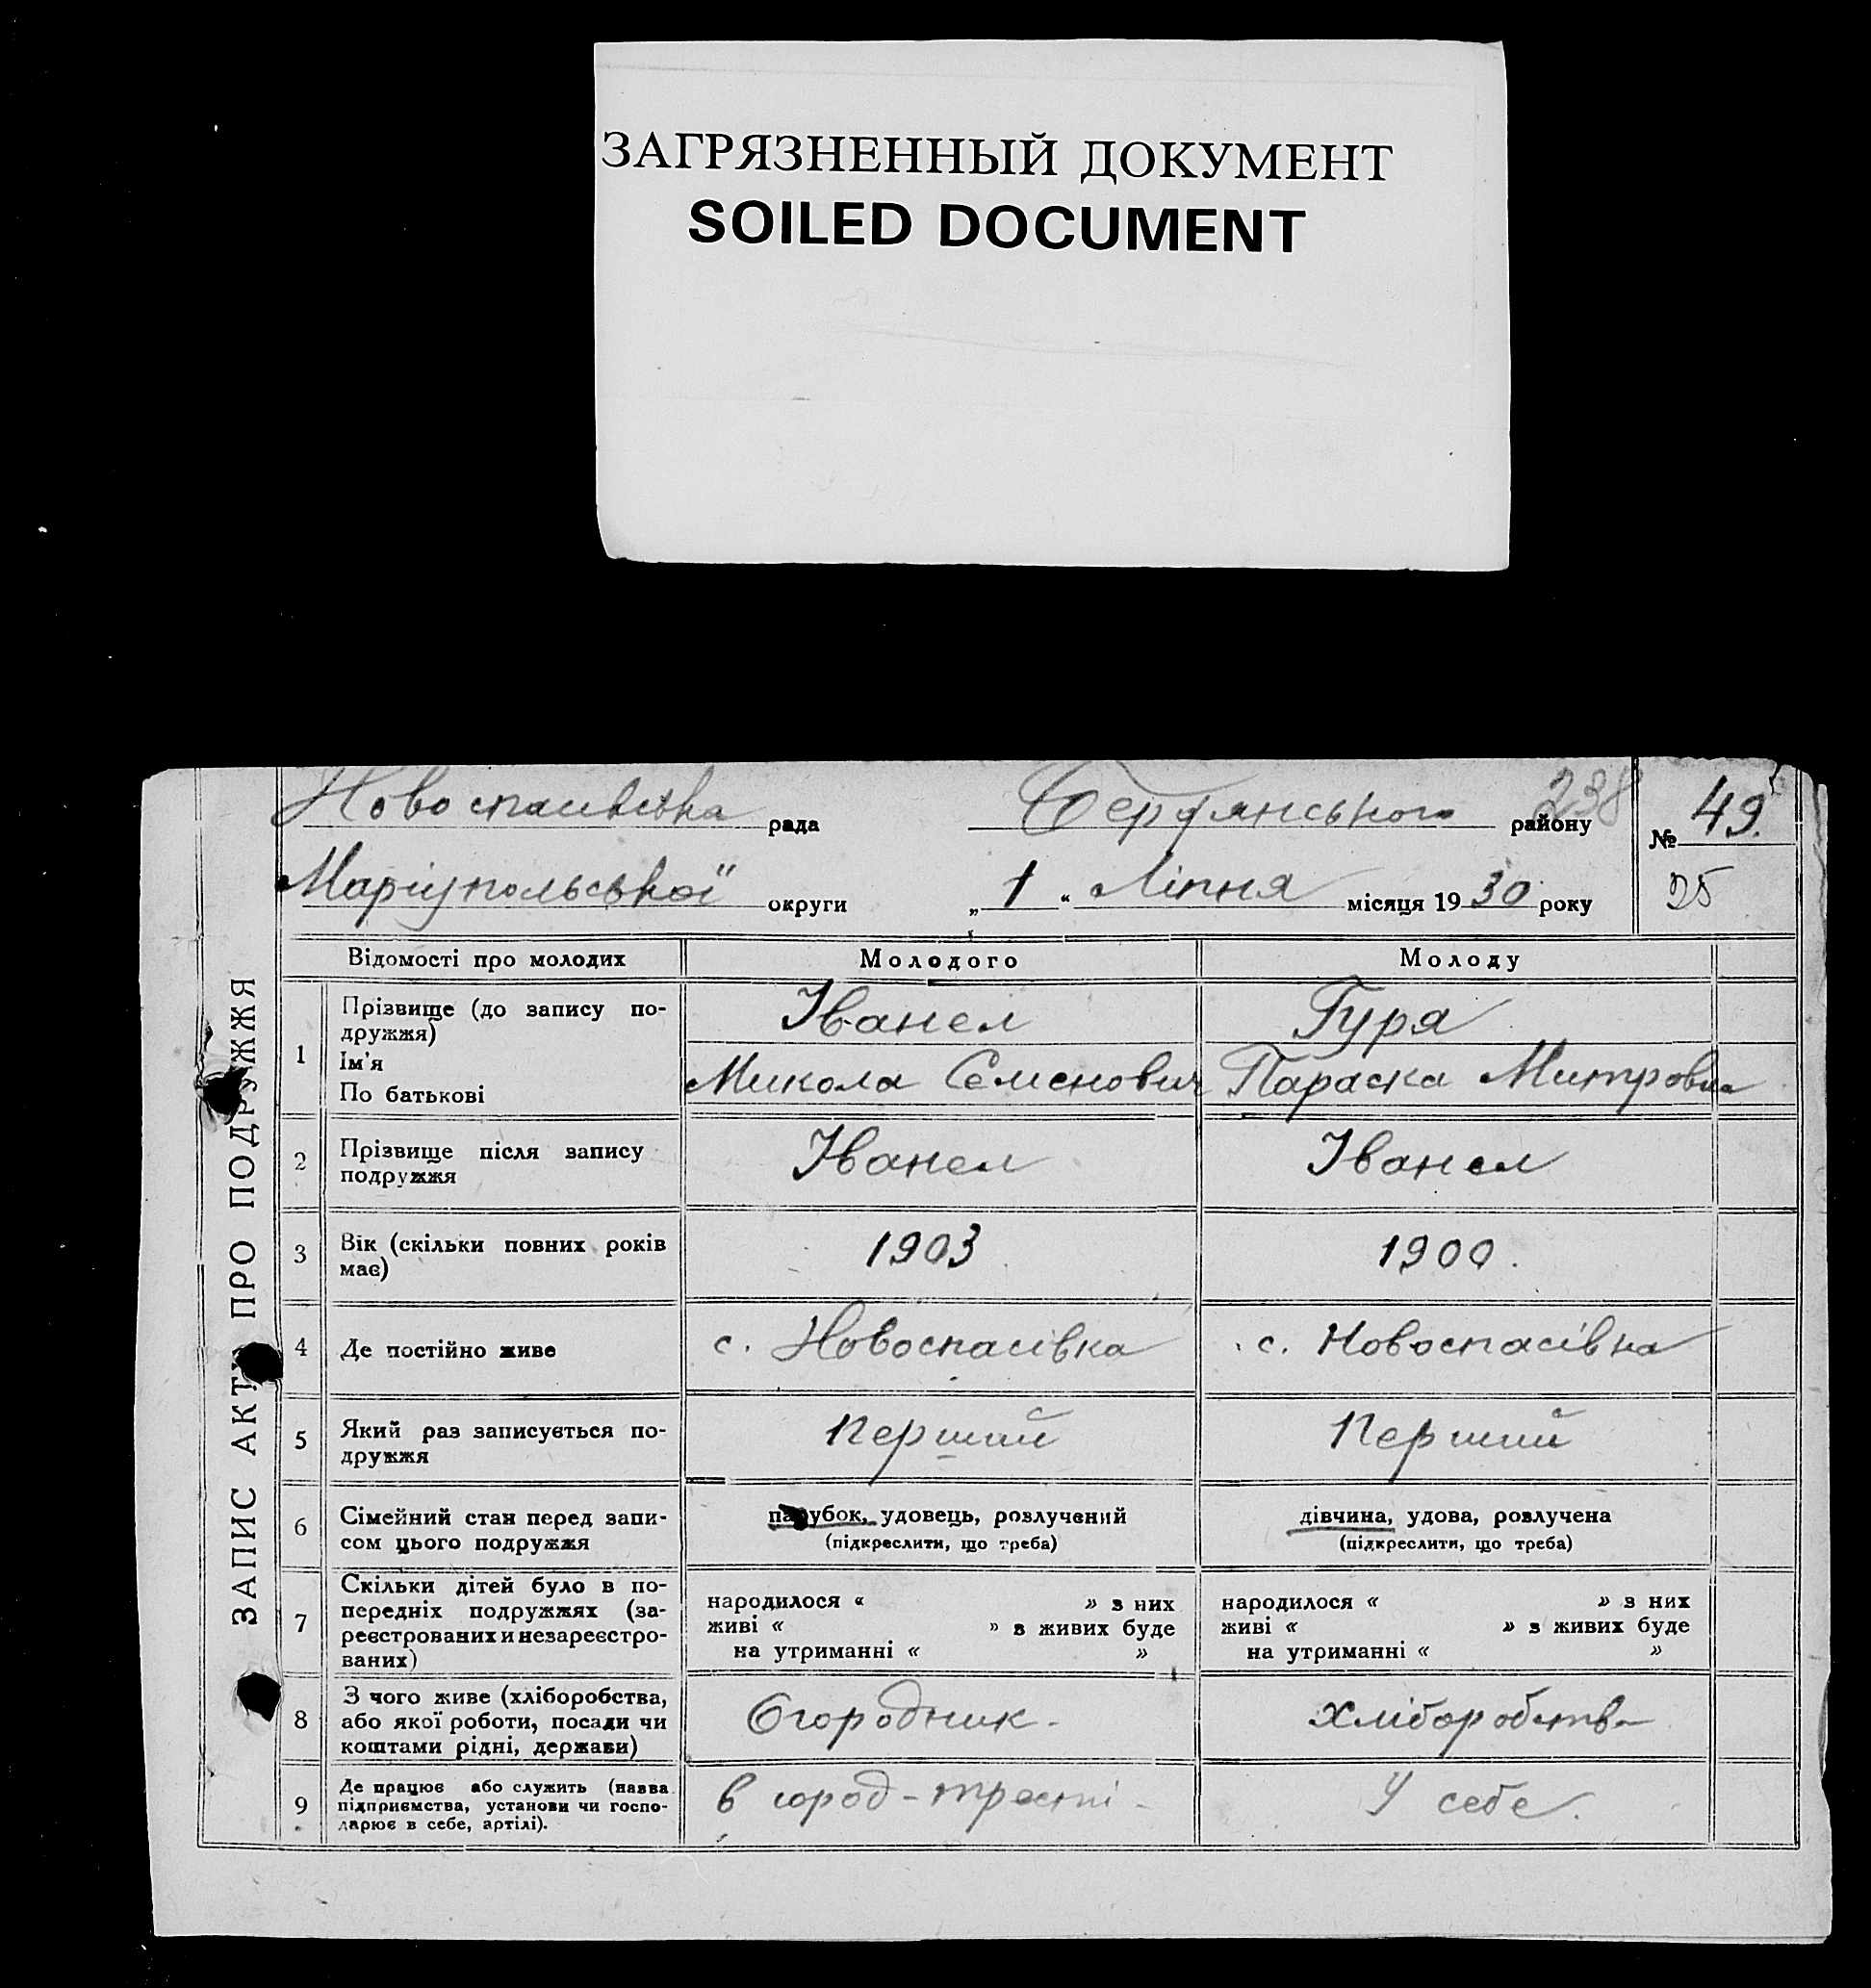 ЗАГРЯЗНЕННЫЙ ДОКУМЕНТ
SOILED DOCUMENT
238
Новоспасівська рада Бердянського району № 49
Маріупольської округи „1“ Ліпня місяця 1930 року 25
ЗАПИС АКТУ ПРО ПОДРУЖЖЯ
Відомості про молодих Молодого Молоду
1 Прізвище (до запису по-
дружжя) Іванел Гуря
Ім'я
По батькові Микола Семенович Параска Митровна
2 Прізвище після запису
подружжя Іванел Іванел
3 Вік (скільки повних років
має) 1903 1900.
4 Де постійно живе с. Новоспасівка с. Новоспасівка
5 Який раз записується по-
дружжя Перший Перший
6 Сімейний стан перед запи-
сом цього подружжя
парубок, удовець, розлучений
(підкреслити, що треба)
дівчина, удова, розлучена
(підкреслити, що треба)
7 Скільки дітей було в по-
передніх подружжях (за-
реєстрованих и незареєстро-
ваних)
народилося « » з них
живі « » з живих буде
на утриманні « »
народилося « » з них
живі « » з живих буде
на утриманні « »
8 З чого живе (хліборобства,
або якої роботи, посади чи
коштами рідні, держави)
Огородник - Хліборобств
9 Де працює або служить (назва
підприємства, установи чи госпо-
дарює в себе, артілі).
в город-тресті - У себе.